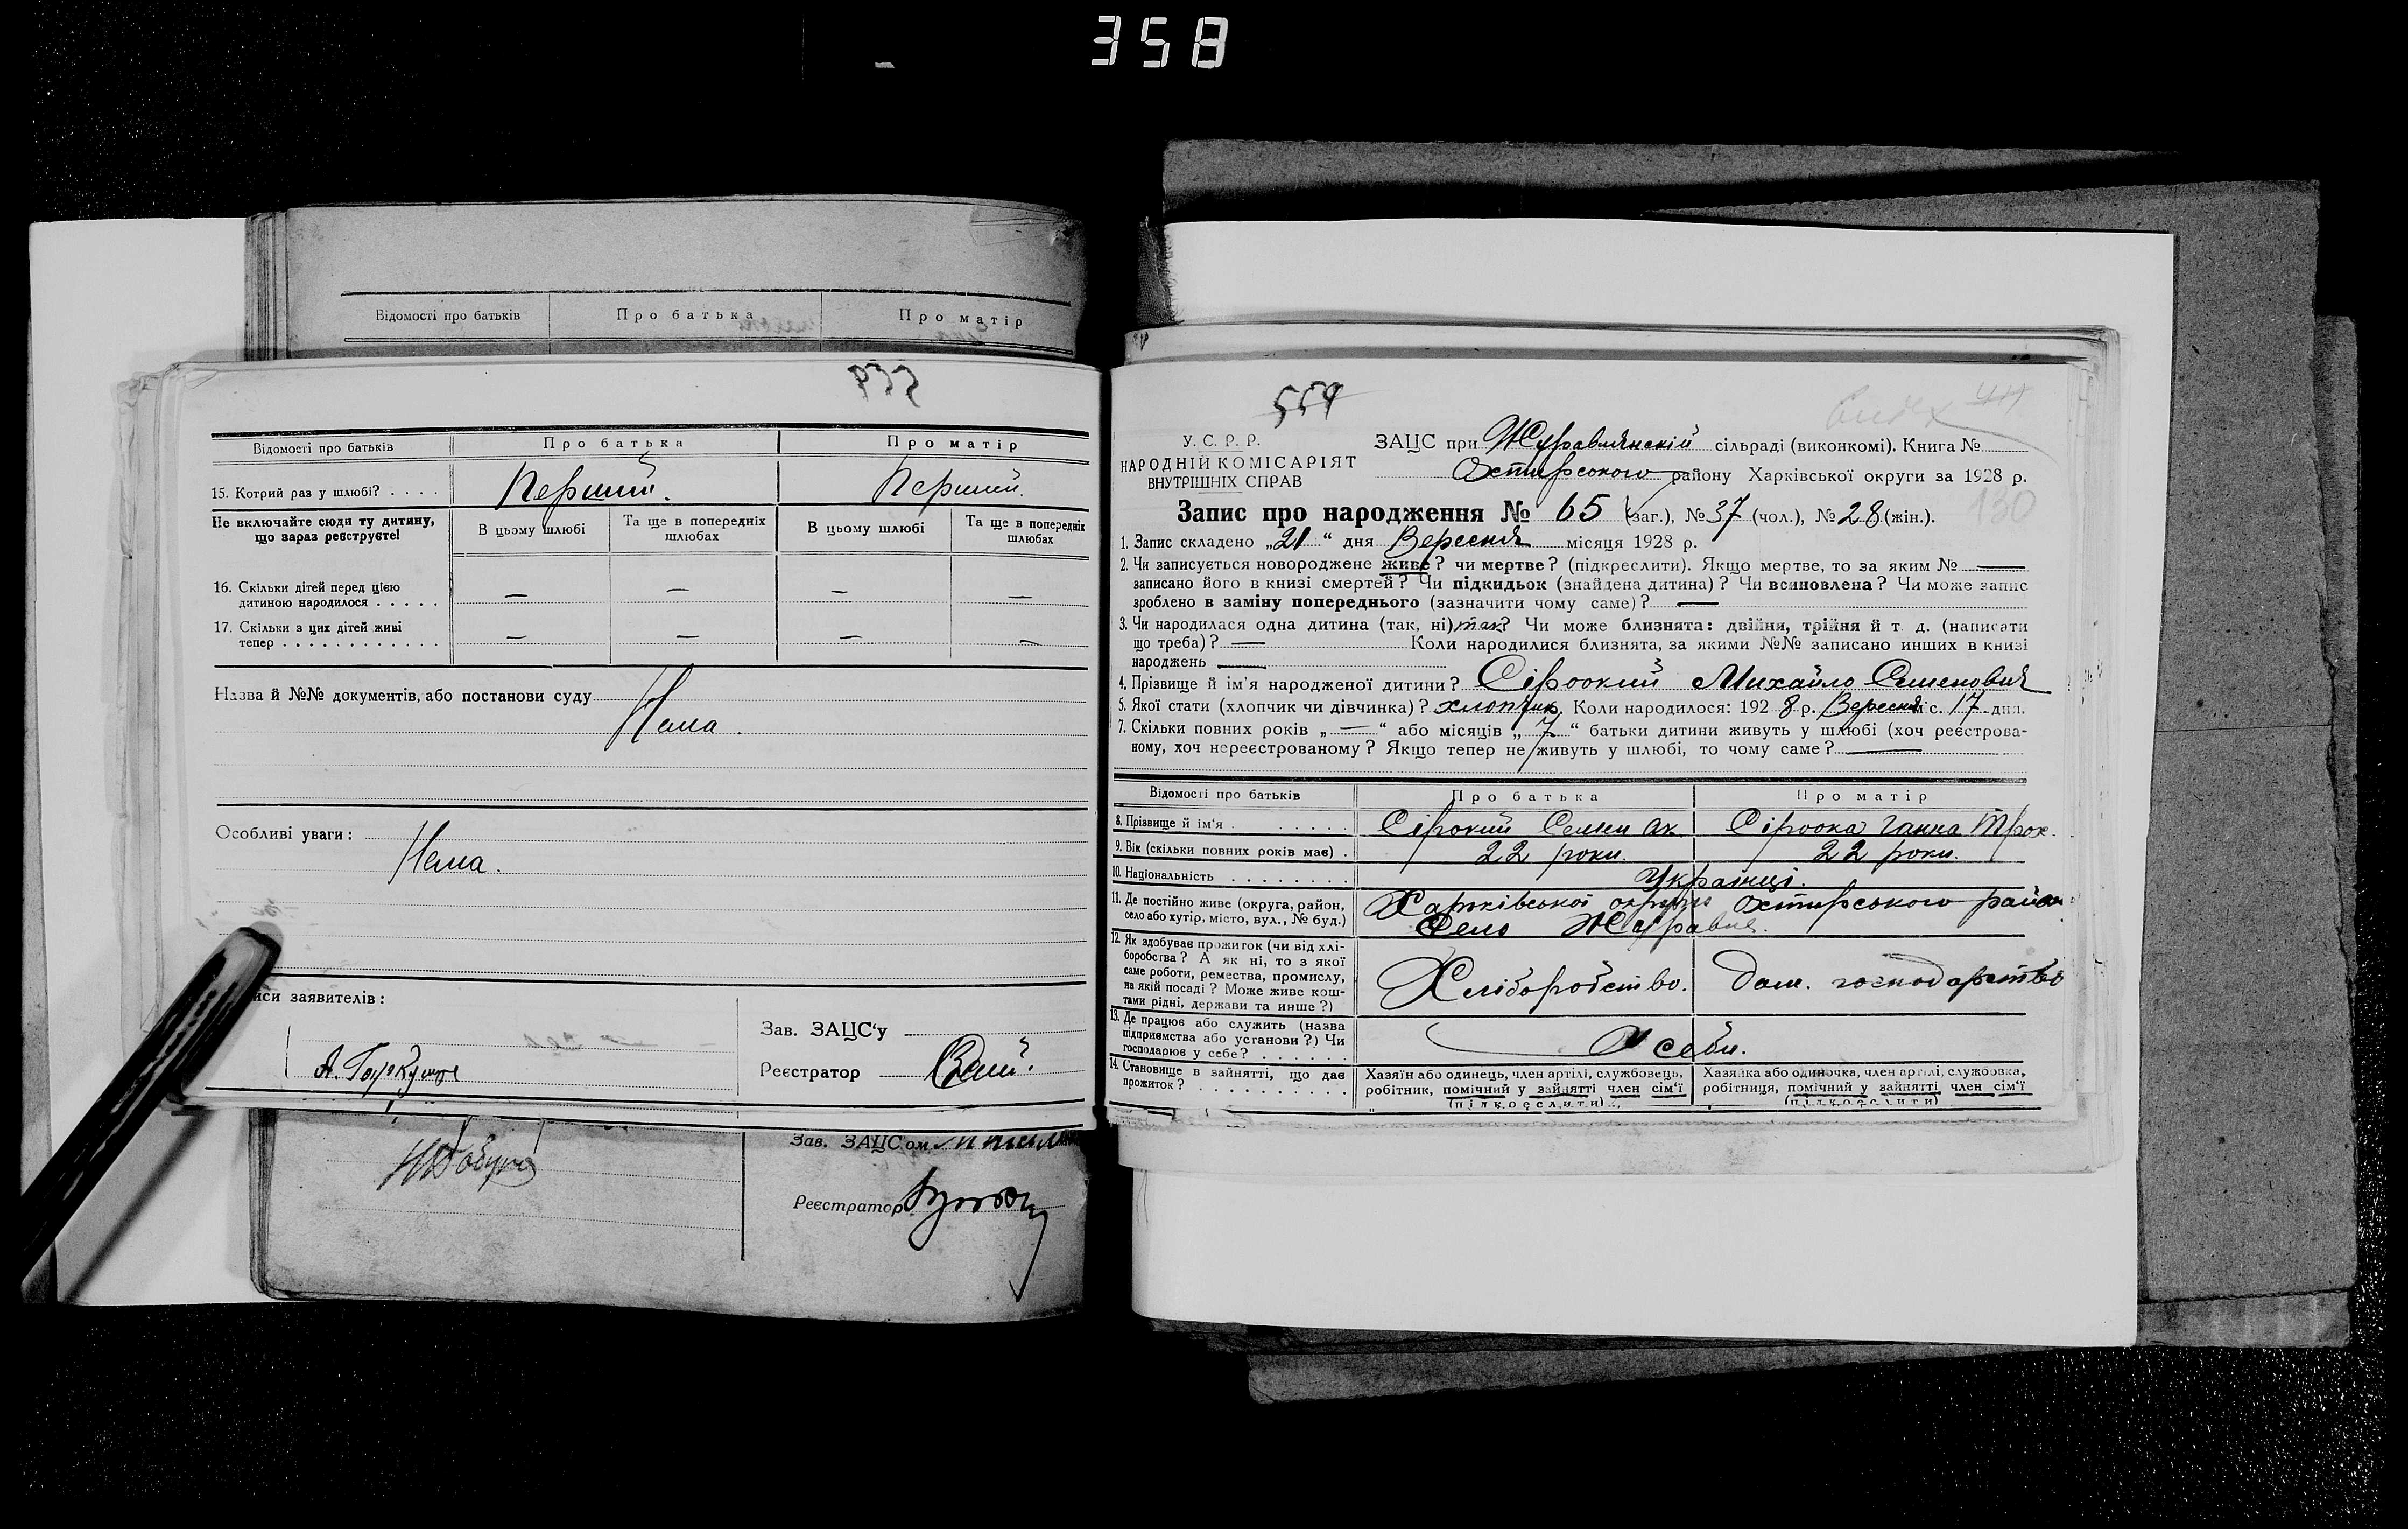 358
Відомості про батьків Про батька Про матір
Відомості про батьків Про батька Про матір
15. Котрий раз у шлюбі? . . . . Перший. Перший.
Не включайте сюди ту дитину, що зараз реєструєте!
В цьому шлюбі Та ще в попередніх шлюбах В цьому шлюбі Та ще в попередніх шлюбах
16. Скільки дітей перед цією
дитиною народилося . . . . . — — — —
17. Скільки з цих дітей живі
тепер . . . . . . . . . . . . — — — —
Назва й №№ документів, або постанови суду
Нема.
Особливі уваги:
Нема.
иси заявителів:
Зав. ЗАЦС'у
Реєстратор
Зав. ЗАЦСом
Реєстратор
559
У. С. Р. Р.
НАРОДНІЙ КОМІСАРІЯТ
ВНУТРІШНІХ СПРАВ
ЗАЦС при Журавлянскій сільраді (виконкомі). Книга №
Охтирського району Харківської округи за 1928 р.
130
Запис про народження № 65 (заг.), № 37 (чол.), № 28 (жін.).
1. Запис складено „21“ дня Вересня місяця 1928 р.
2. Чи записується новороджене живе? чи мертве? (підкреслити). Якщо мертве, то за яким № —
записано його в книзі смертей? Чи підкидьок (знайдена дитина)? Чи всиновлена? Чи може запис
зроблено в заміну попереднього (зазначити чому саме)? —
3. Чи народилася одна дитина (так, ні) так? Чи може близнята: двійня, трійня й т. д. (написати
що треба)? — Коли народилися близнята, за якими №№ записано инших в книзі
народжень —
4. Прізвище й ім'я народженої дитини? Сірокий Михайло Семенович
5. Якої стати (хлопчик чи дівчинка)? хлопчик. Коли народилося: 1928 р. Вересня міс. 17 дня.
7. Скільки повних років „—“ або місяців „7“ батьки дитини живуть у шлюбі (хоч реєстрова-
ному, хоч нереєстрованому? Якщо тепер не живуть у шлюбі, то чому саме? —
Відомості про батьків Про батька Про матір
8. Прізвище й ім'я . . . . . . Сірокий Семен Як. Сіроока Ганна Трох.
9. Вік (скільки повних років має) . 22 роки. 22 роки.
10. Національність . . . . . . . . Українці.
11. Де постійно живе (округа, район,
село або хутір, місто, вул., № буд.)
Харківської округи Охтирського район
Село Журавне.
12. Як здобуває прожиток (чи від хлі-
боробства? А як ні, то з якої
саме роботи, ремества, промислу,
на якій посаді? Може живе кош-
тами рідні, держави та инше?)
Хліборобство. Дом. господарство
13. Де працює або служить (назва
підприємства або установи?) Чи
господарює у себе? . . . . . .
У себе.
14. Становище в зайнятті, що дає
прожиток? . . . . . . . . .
Хазяїн або одинець, член артілі, службовець,
робітник, помічний у зайнятті член сім'ї
(підкреслити)
Хазяйка або одиночка, член артілі, службовка,
робітниця, помічний у зайнятті член сім'ї
(підкреслити)